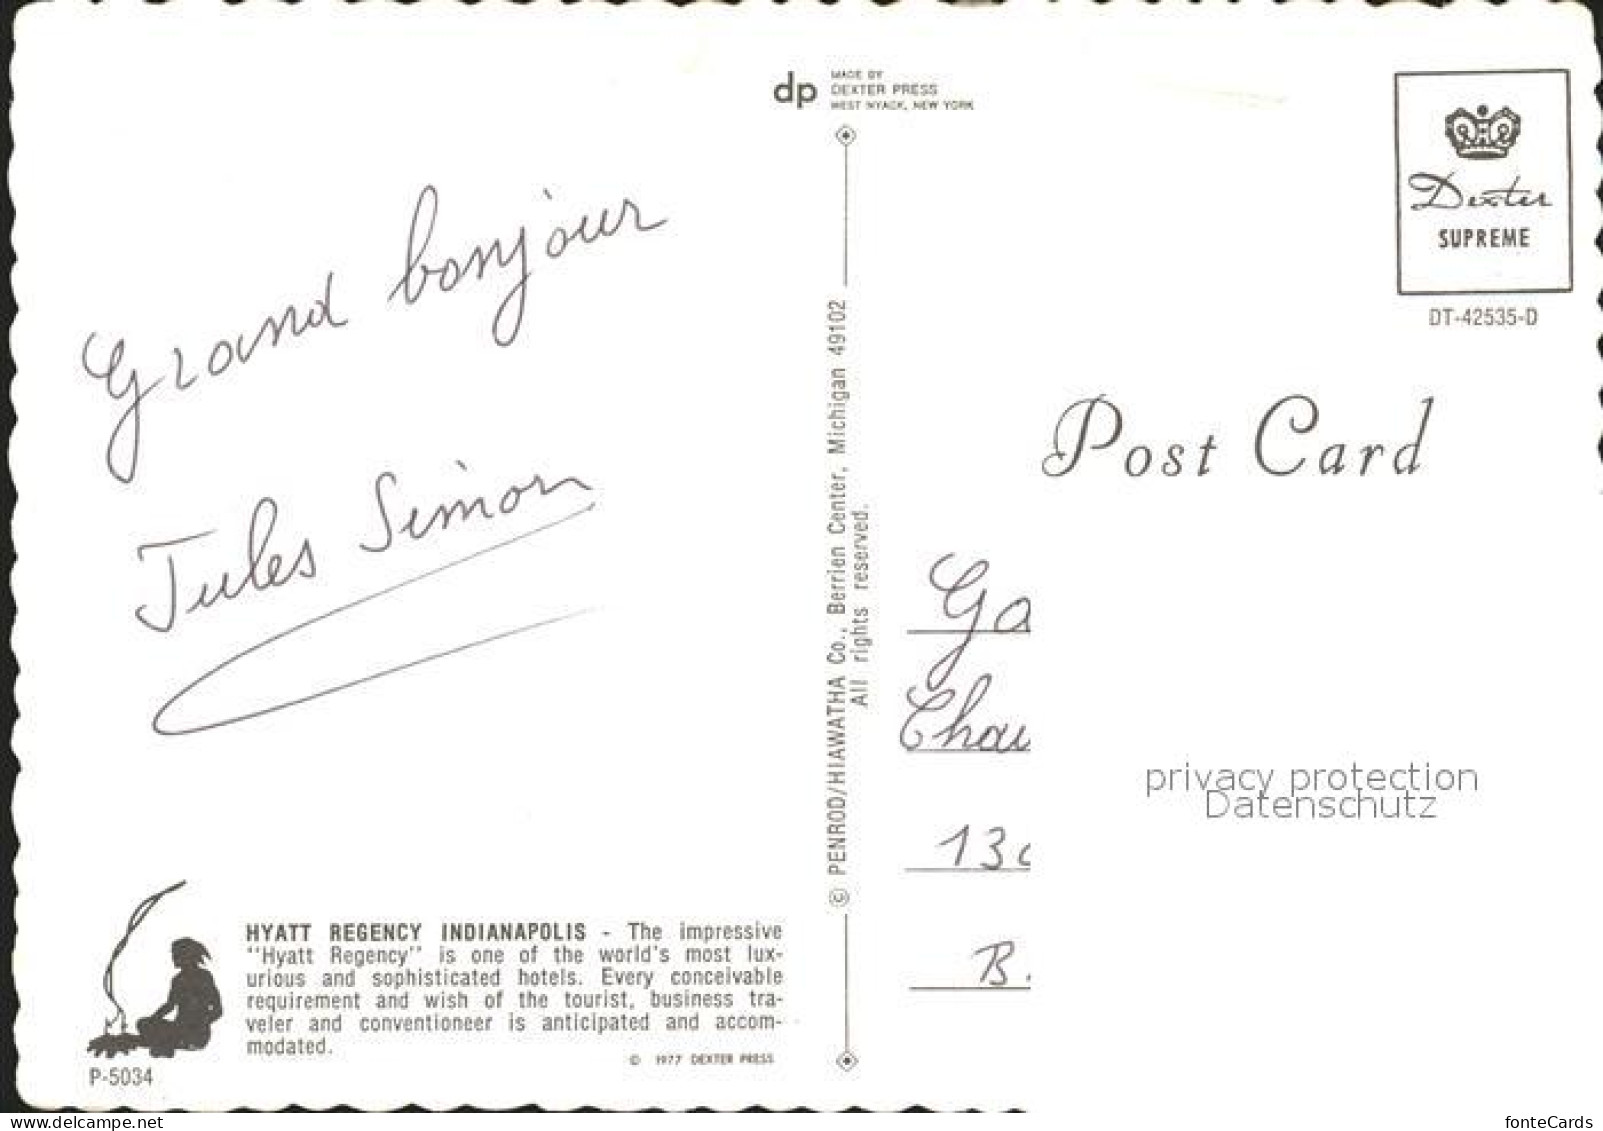 dp MADE BY
DEXTER PRESS
WEST NYACK, NEW YORK
Dexter
SUPREME
DT-42535-D
Grand bonjour
Jules Simon
Post Card
© PENROD/HIAWATHA Co., Berrien Center, Michigan 49102
All rights reserved.
130
B.
privacy protection
Datenschutz
HYATT REGENCY INDIANAPOLIS - The impressive
"Hyatt Regency" is one of the world's most lux-
urious and sophisticated hotels. Every conceivable
requirement and wish of the tourist, business tra-
veler and conventioneer is anticipated and accom-
modated.
© 1977 DEXTER PRESS
P-5034
www.delcampe.net
fonteCards